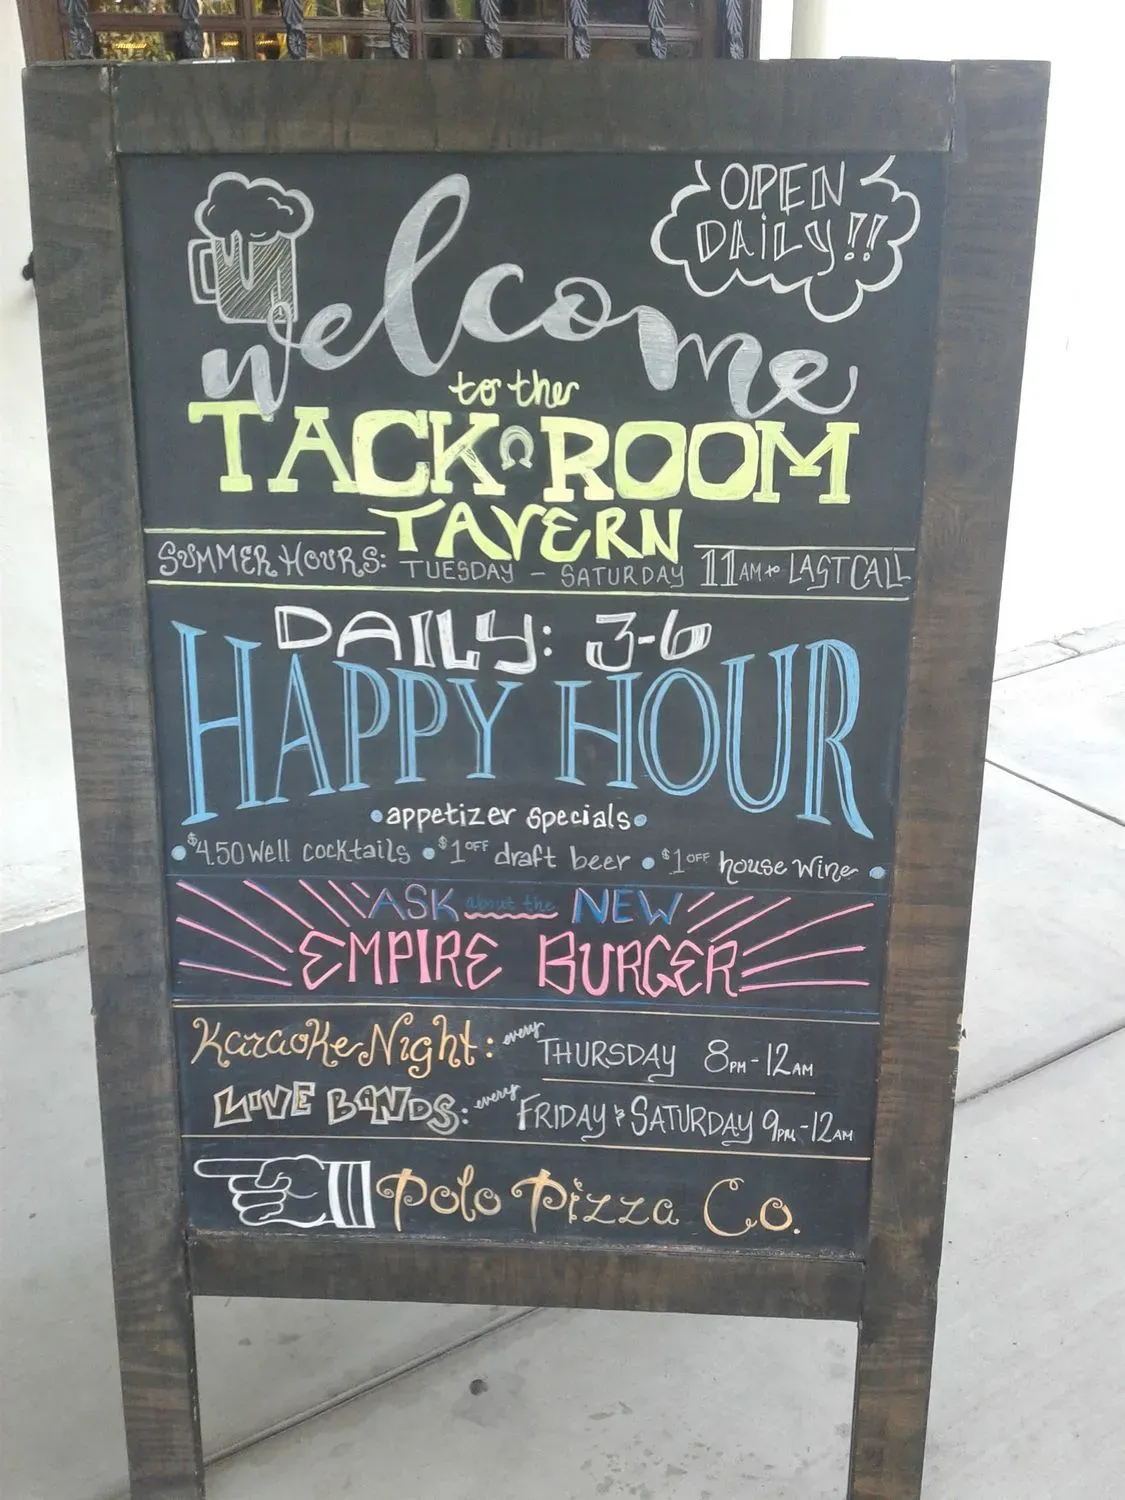 OPEN
DAiLy!!
welcome
to the
TACK ROOM
TAVERN
SUMMER HOURS: TUESDAY - SATURDAY 11AM to LAST CALL
DAILY: 3-6
HAPPY HOUR
•appetizer specials•
•$4.50 well cocktails •$1 OFF draft beer •$1 OFF house wine•
ASK about the NEW
EMPIRE BURGER
Karaoke Night: every THURSDAY 8PM-12AM
LIVE BANDS: every FRIDAY & SATURDAY 9PM-12AM
Polo Pizza Co.